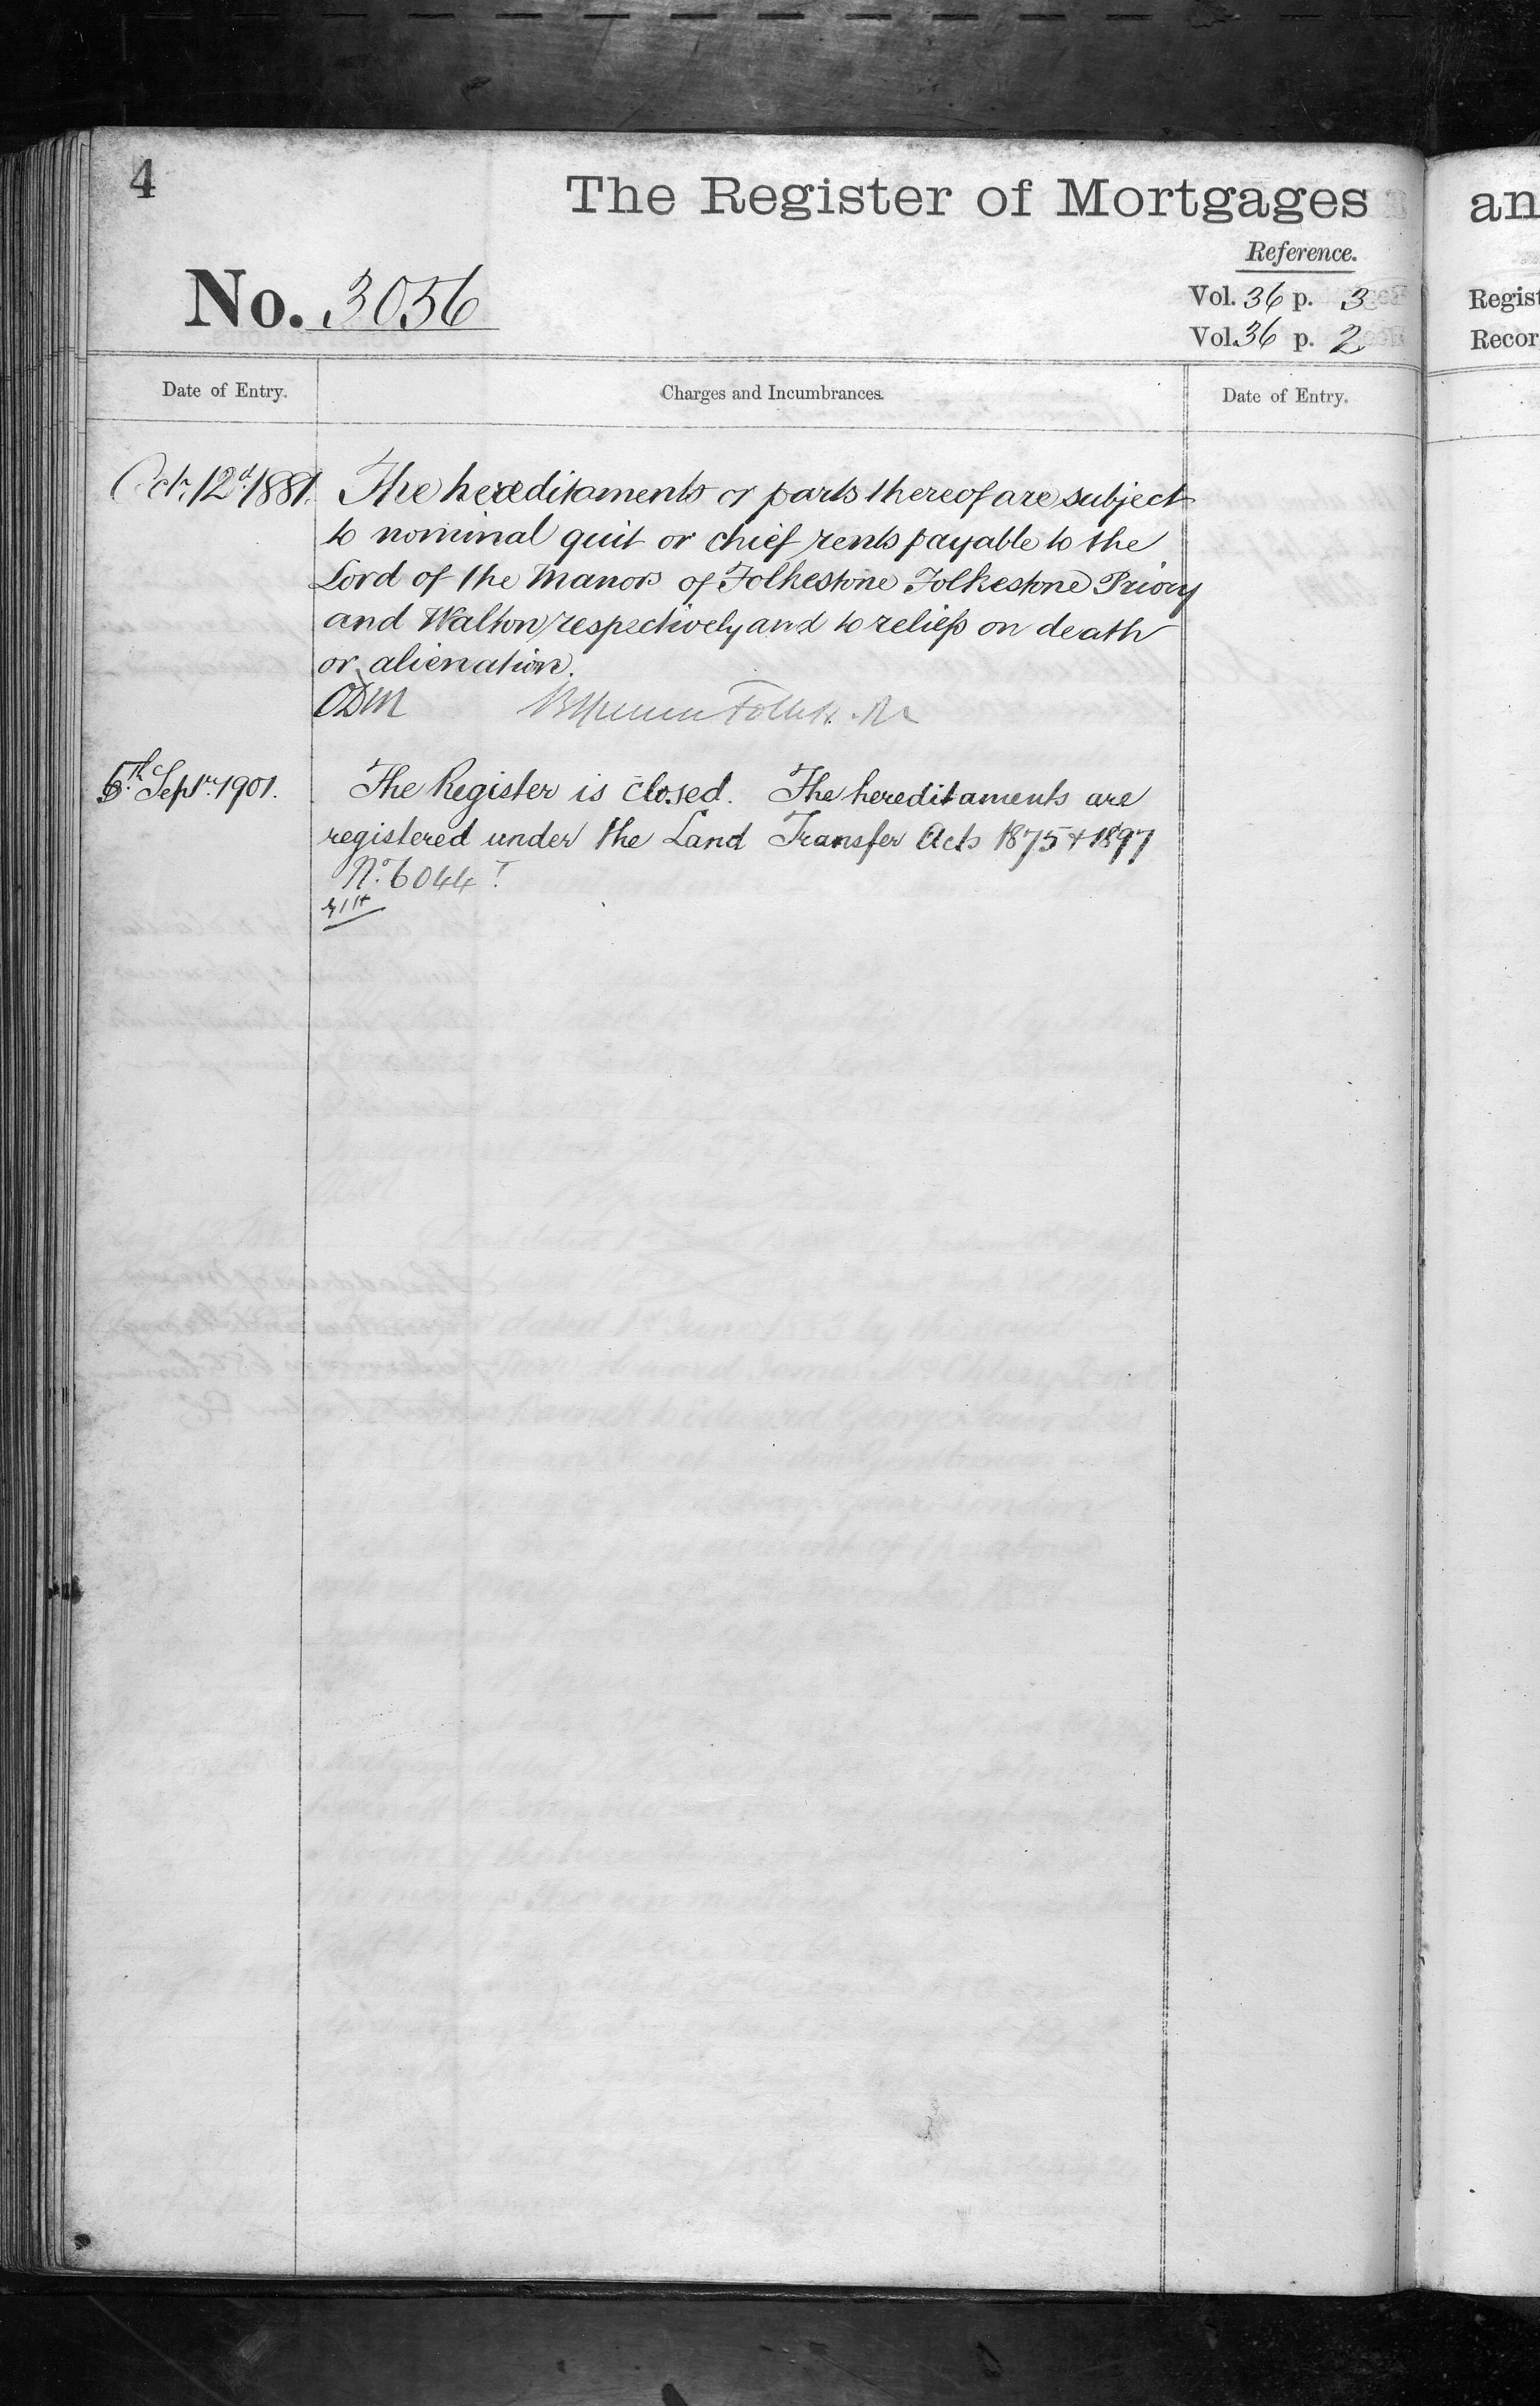 4
The Register of Mortgages
an
Reference.
No. 3056
Vol. 36 p. 3
Regist
Vol. 36 p. 2
Recor
Date of Entry.
Charges and Incumbrances.
Date of Entry.
Octr. 12d. 1881. The hereditaments or parts thereof are subject
to nominal quit or chief rents payable to the
Lord of the Manors of Folkestone Folkestone Priory
and Walton respectively and to reliefs on death
or alienation.
ODM
5th Septr. 1901. The Register is closed. The hereditaments are
registered under the Land Transfer Acts 1875 & 1897
No. 6044